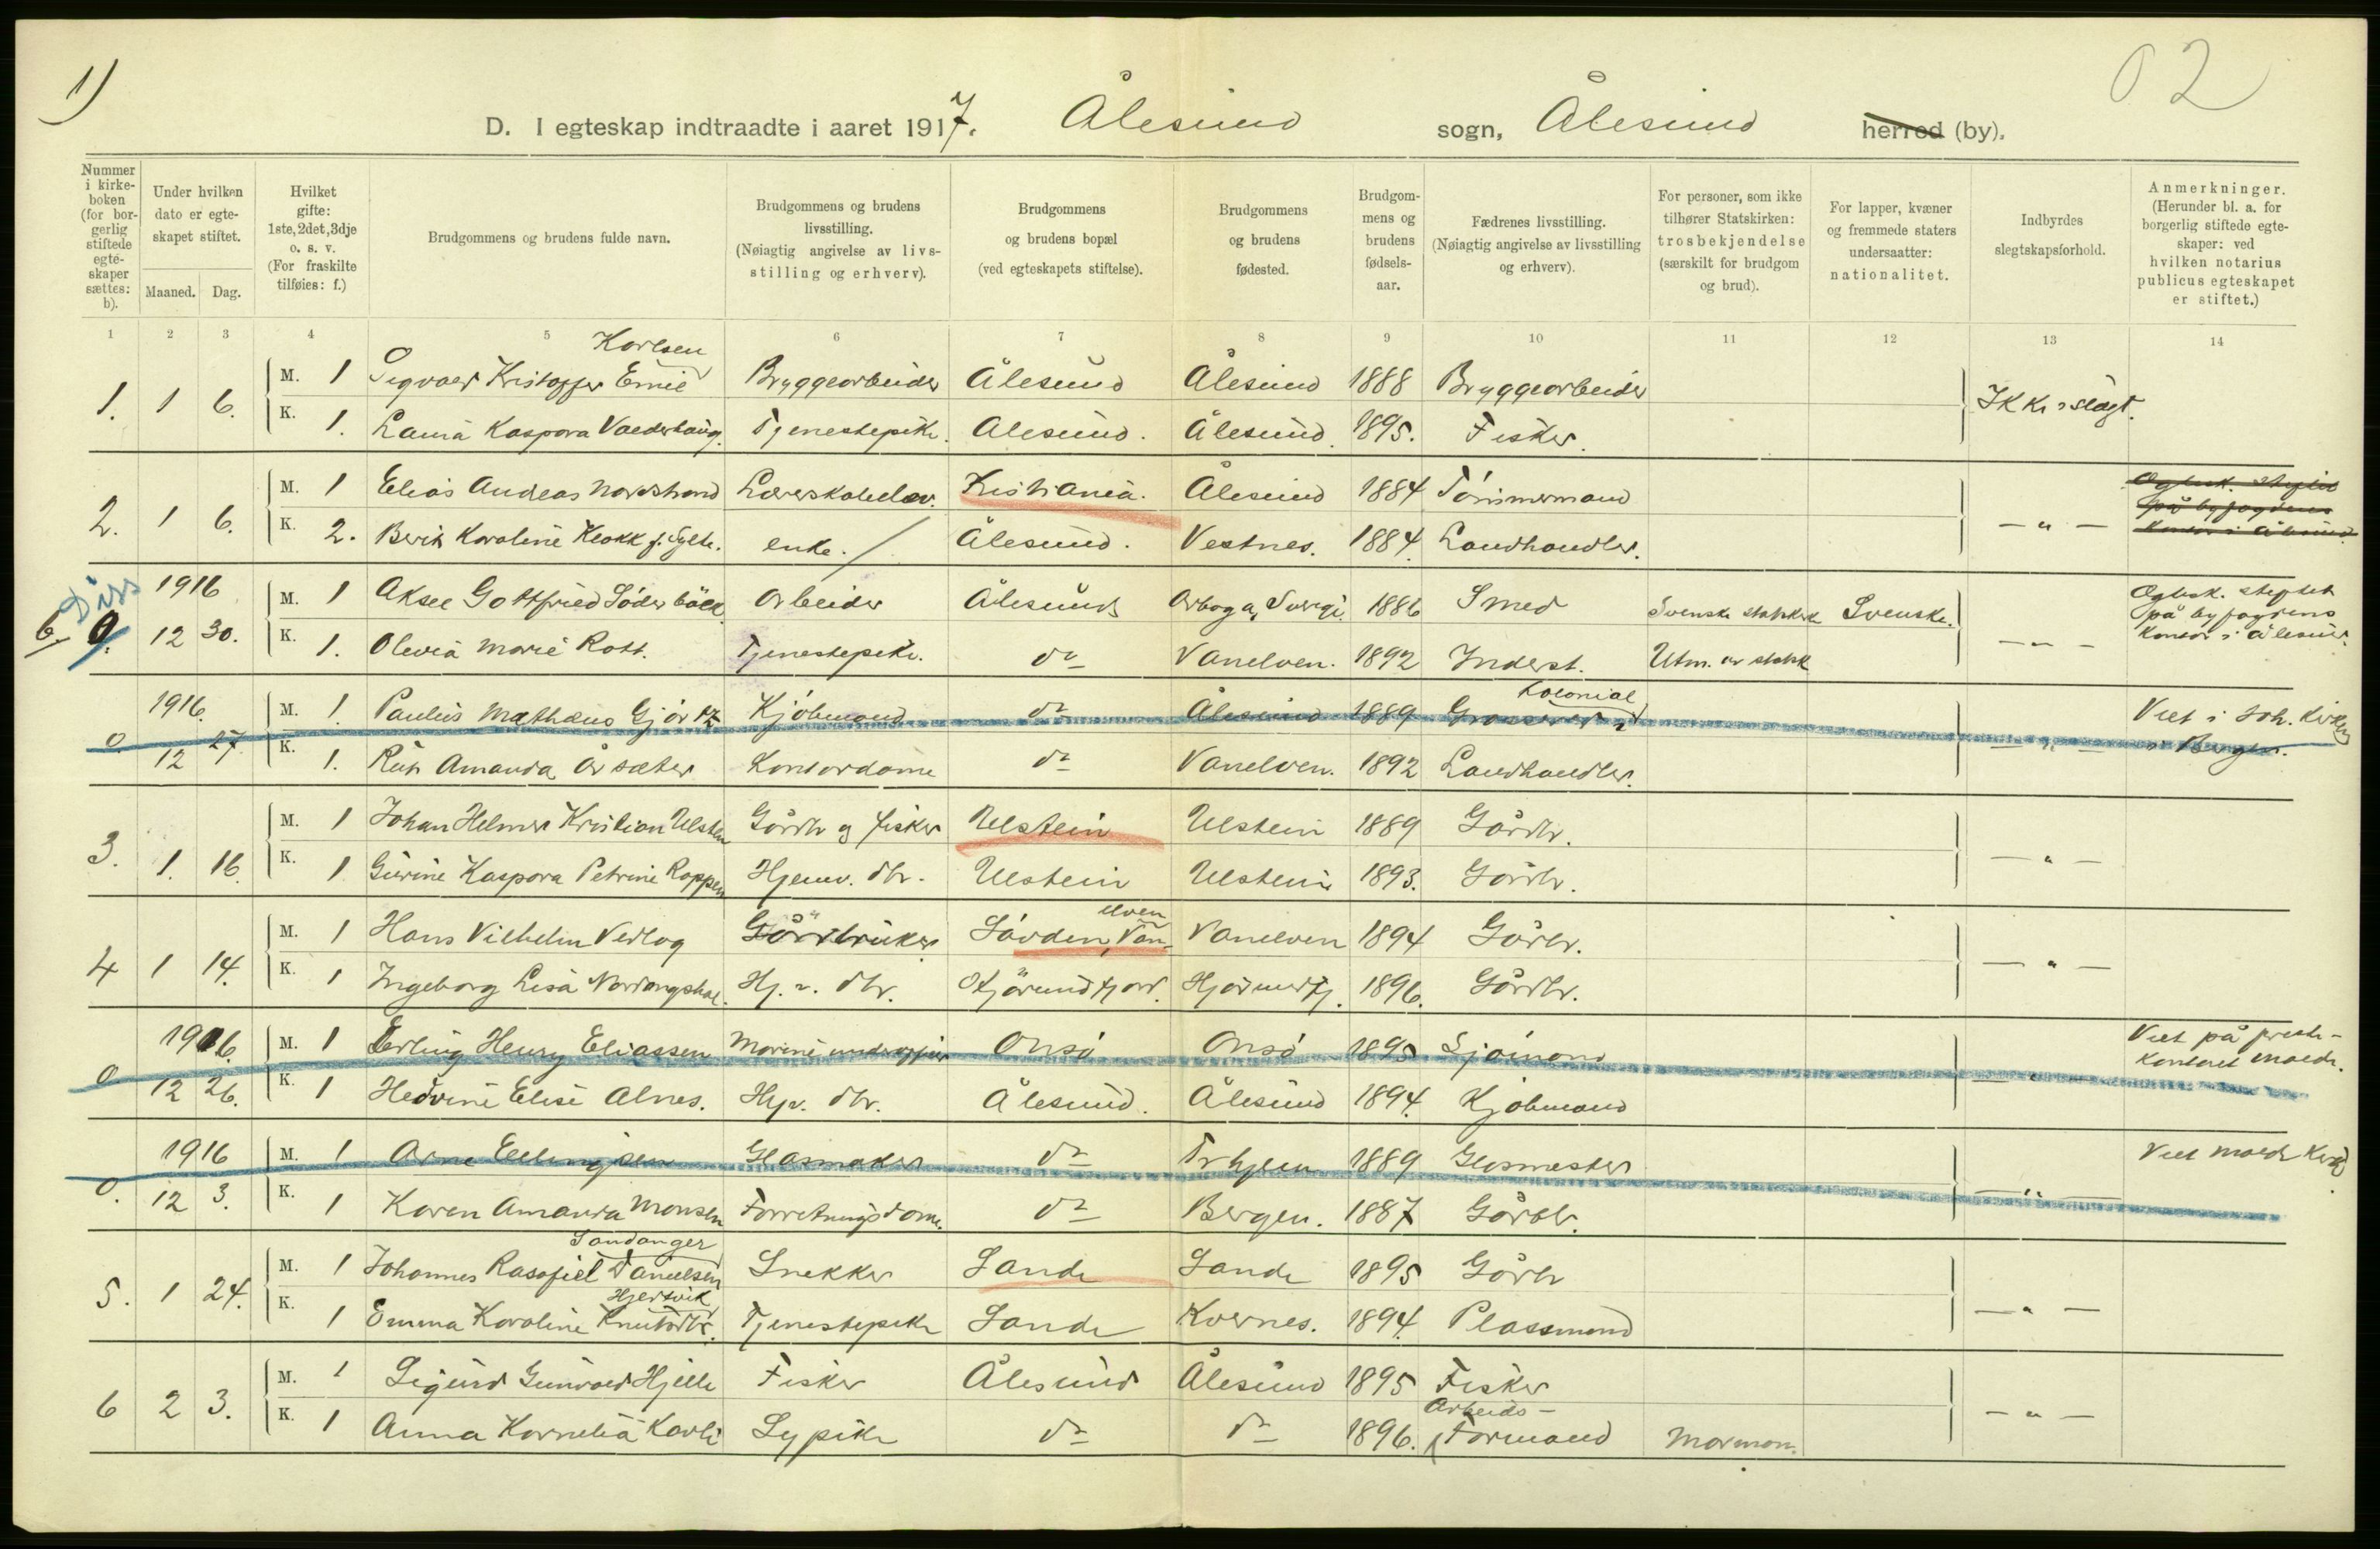 1)
02
D. I egteskap indtraadte i aaret 1917. Ålesund sogn, Ålesund herred (by).
Nummer i kirkeboken (for borgerlig stiftede egteskaper sættes: b).
Under hvilken dato er egteskapet stiftet.
Maaned. Dag.
Hvilket gifte: 1ste, 2det, 3dje o. s. v. (For fraskilte tilføies: f.)
Brudgommens og brudens fulde navn.
Brudgommens og brudens livsstilling. (Nøiagtig angivelse av livsstilling og erhverv).
Brudgommens og brudens bopæl (ved egteskapets stiftelse).
Brudgommens og brudens fødested.
Brudgommens og brudens fødselsaar.
Fædrenes livsstilling. (Nøiagtig angivelse av livsstilling og erhverv).
For personer, som ikke tilhører Statskirken: trosbekjendelse (særskilt for brudgom og brud).
For lapper, kvæner og fremmede staters undersaatter: nationalitet.
Indbyrdes slegtskapsforhold.
Anmerkninger. (Herunder bl. a. for borgerlig stiftede egteskaper: ved hvilken notarius publicus egteskapet er stiftet.)
1 2 3 4 5 6 7 8 9 10 11 12 13 14
Karlsen
M. 1 Sigvald Kristoffer Emil Bryggearbeider Ålesund Ålesund 1888 Bryggearbeider
1. 1 6. Ikke i slegt.
K. 1. Laura Kaspara Valderhaug. Tjenestepike. Ålesund. Ålesund. 1895. Fisker.
M. 1 Elias Andreas Nordstrand Lærerskoleelev. Kristiania. Ålesund 1884 Tømmermand
2. 1 6. — " —
K. 2. Berit Karoline Klokk f. Sylte. enke. Ålesund. Vestnes. 1884. Landhandler.
Egtesk. stiftet på byfogdens kontor i Ålesund.
Diss
1916 M. 1 Aksel Gottfried Söderbäck Arbeider Ålesund Arboga, Sverige. 1886 Smed Svenske statskirke Svenske.
b. 0. 12 30. — " —
K. 1. Olivia Marie Rott. Tjenestepike. do Vanelven. 1892 Inderst. Utm. av statsk
Egtesk. stiftet på byfogdens kontor i Ålesund.
Kolonial
1916. M. 1. Paulus Mathæus Gjørtz Kjøbmand do Ålesund 1889 Grosserer
0 12 27 — " —
K. 1. Rut Amanda Årsæter Kontordame do Vanelven. 1892 Landhandler.
Viet i Joh. kirken i Bergen.
M. 1 Johan Helmer Kristian Ulstein Gårdbr og fisker Ulstein Ulstein 1889 Gårdbr.
3. 1. 16. — " —
K. 1 Gurine Kaspara Petrine Roppen Hjemv. dtr. Ulstein Ulstein 1893. Gårdbr.
elven
M. 1 Hans Vilhelm Vedlog Gårdbruker Søvden, Van- Vanelven 1894 Gårbr.
4 1 14. — " —
K. 1 Ingeborg Lisa Nordangsdal. Hj. v. dtr. Hjørundfjord. Hjørundfj. 1896. Gårdbr.
1916. M. 1 Erling Henry Eliassen Marine underofficer Onsø Onsø 1895 Sjømand
0 12 26. — " —
K. 1 Hedvine Elise Alnes. Hjv. dtr. Ålesund. Ålesund 1894. Kjøbmand
Viet på prestekontoret Molde.
1916 M. 1 Arne Ellingsen Glasmaker do Trhjem 1889 Glasmester
0. 12 3. — " —
K. 1 Karen Amanda Monsen Forretningsdame. do Bergen. 1887 Gårdbr.
Viet Molde Kirke
Sandanger
M. 1 Johannes Rasafiel Danielsen Snekker Sande Sande 1895 Gårbr
5. 1 24. — " —
Hjertvik
K. 1 Emma Karoline Knutsdtr. Tjenestepike Sande Kvernes. 1894. Plassmand
M. 1 Sigurd Gunvald Hjelle Fisker Ålesund Ålesund 1895 Fisker
6 2 3. — " —
Arbeids-
K. 1 Anna Kornelia Karli Sypike do do 1896. Formand Mormon.